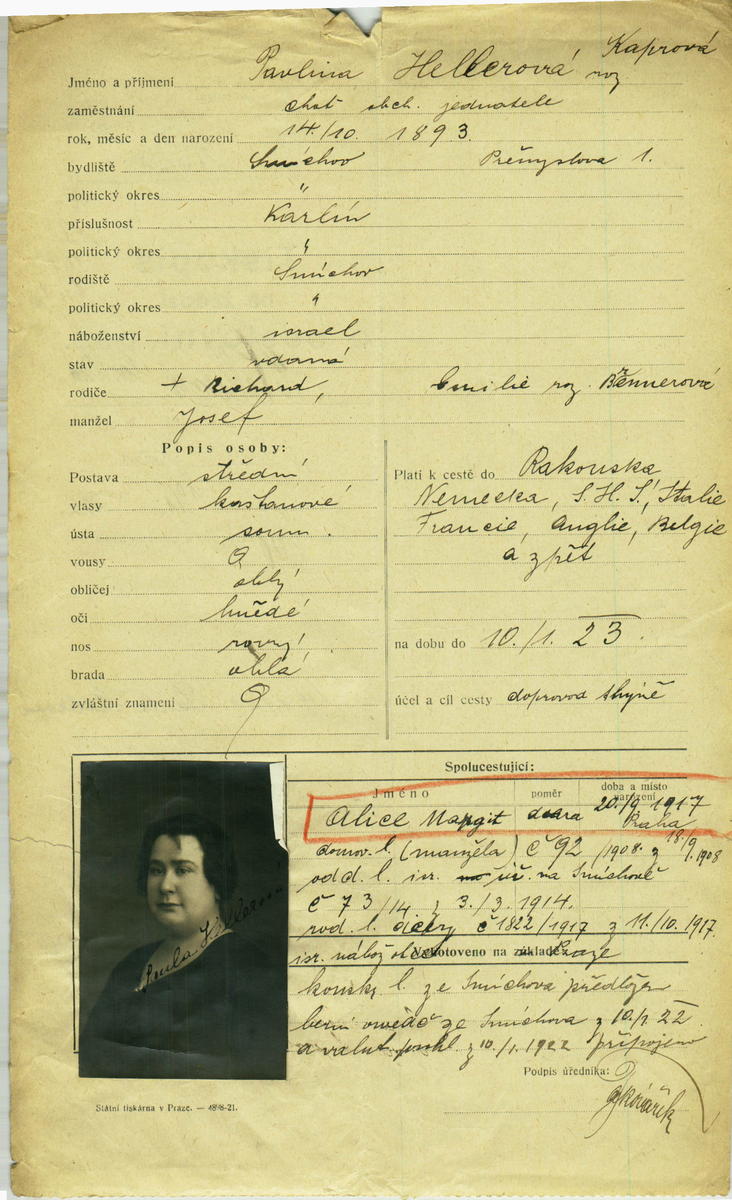 Jméno a příjmení Pavlina Hellerová roz Kaprová
zaměstnání choť obch. jednatele
rok, měsíc a den narození 14./10. 1893.
bydliště Smíchov Přemyslova 1.
politický okres "
příslušnost Karlín
politický okres "
rodiště Smíchov
politický okres "
náboženství israel
stav vdaná
rodiče + Richard, Emilie roz. Brennerová
manžel Josef
Popis osoby:
Postava střední
vlasy kaštanové
ústa soum.
vousy 0
obličej oblý
oči hnědé
nos rovný
brada oblá
zvláštní znamení 0
Platí k cestě do Rakouska
Německa, S.H.S., Italie
Francie, Anglie, Belgie
a zpět
na dobu do 10./1. 23.
účel a cíl cesty doprovod
Spolucestující:
Jméno poměr doba a místo narození
Alice Margit dcera 20./9. 1917
Praha
domov. l. (manžela) č 92 /1908. z 18./9. 1908
odd. l. isr. na Smíchově
č 73/14. z 3./3. 1914.
rod. l. dcery č 1822/1917 z 11./10. 1917.
isr. nábož. Praze
Vyhotoveno na základě:
l. ze Smíchova předložen
ze Smíchova z 10./1. 22
a valut. z 10./1. 1922 připojeno
Podpis úředníka:
Paula Hellerová
Státní tiskárna v Praze. — 4848-21.